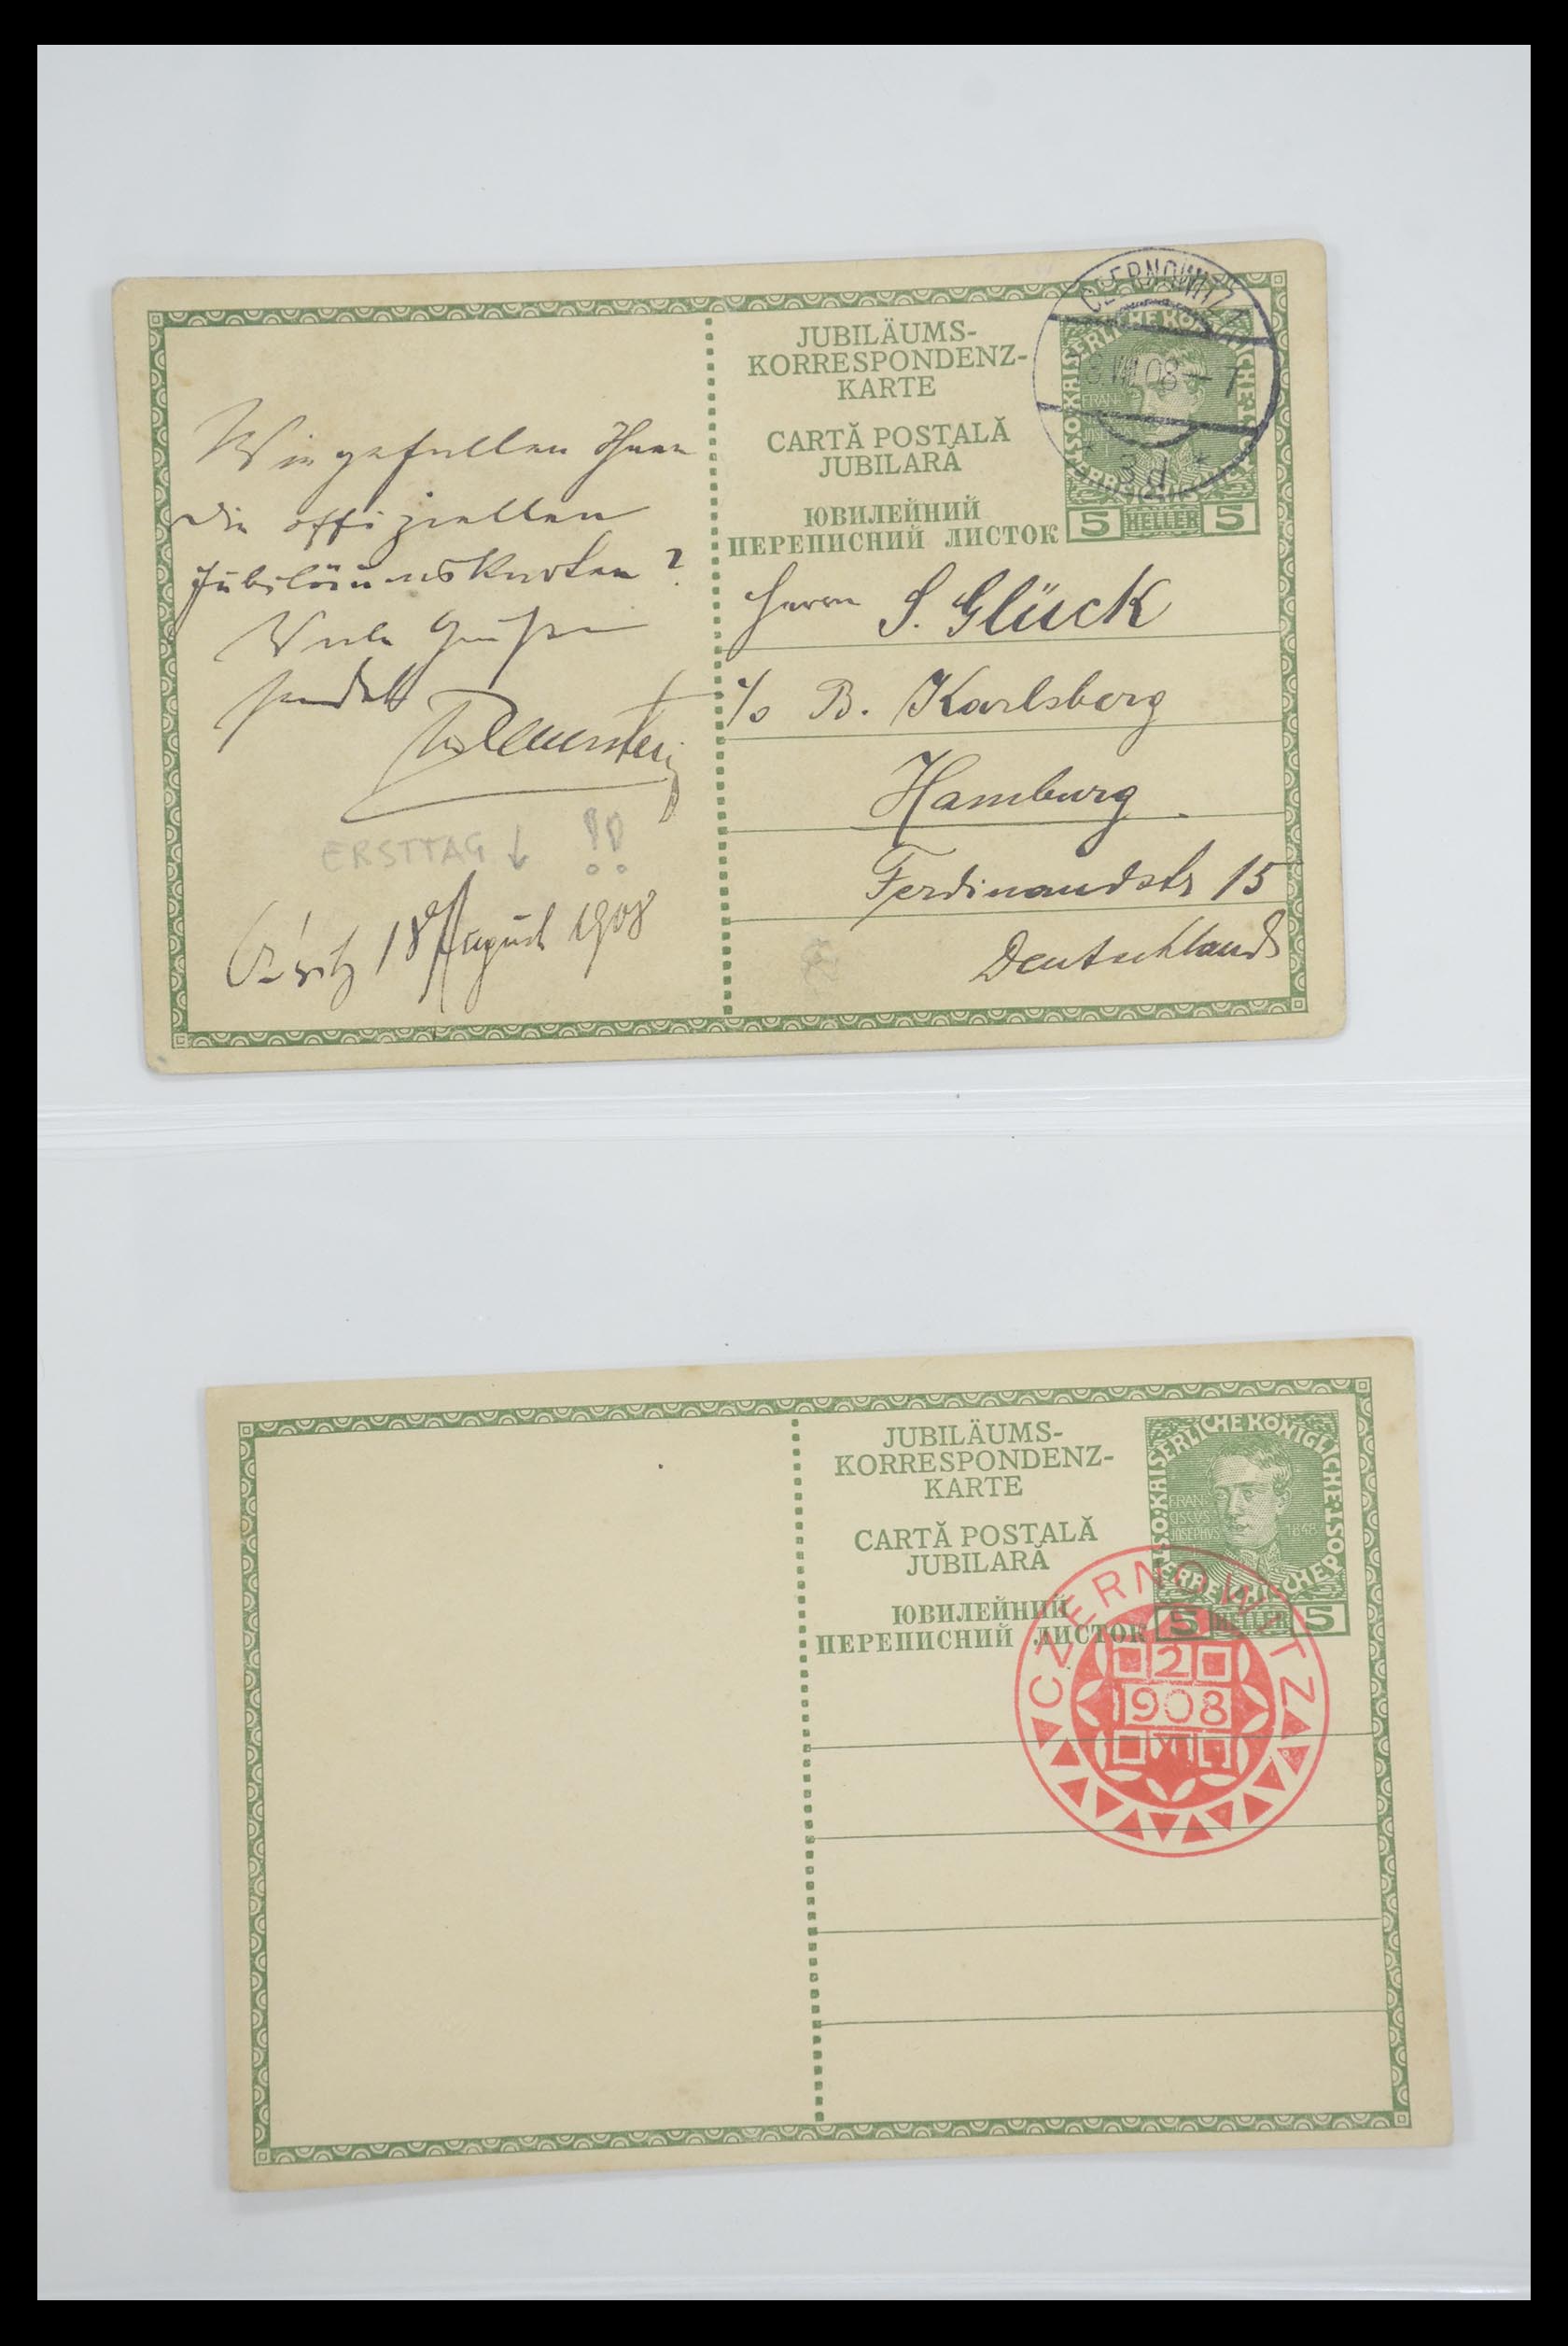 Wie gefallen Ihnen
die offiziellen
Jubiläumskarten?
Viele Grüße
sendet
ERSTTAG ↓ !!
18 August 1908
JUBILÄUMS-
KORRESPONDENZ-
KARTE
CARTĂ POSTALĂ
JUBILARĂ
ЮВИЛЕЙНИЙ
ПЕРЕПИСНИЙ ЛИСТОК
CZERNOWITZ 1
18.VIII.08
* 3d *
5 HELLER 5
Herrn S. Glück
c/o B. Karlsberg
Hamburg
Ferdinandstr 15
Deutschland
JUBILÄUMS-
KORRESPONDENZ-
KARTE
CARTĂ POSTALĂ
JUBILARĂ
ЮВИЛЕЙНИЙ
ПЕРЕПИСНИЙ ЛИСТОК
KAISERLICHE KÖNIGLICHE POST
FRAN-
CISCVS
JOSEPHVS I
1848
5 HELLER 5
CZERNOWITZ
2
1908
XII